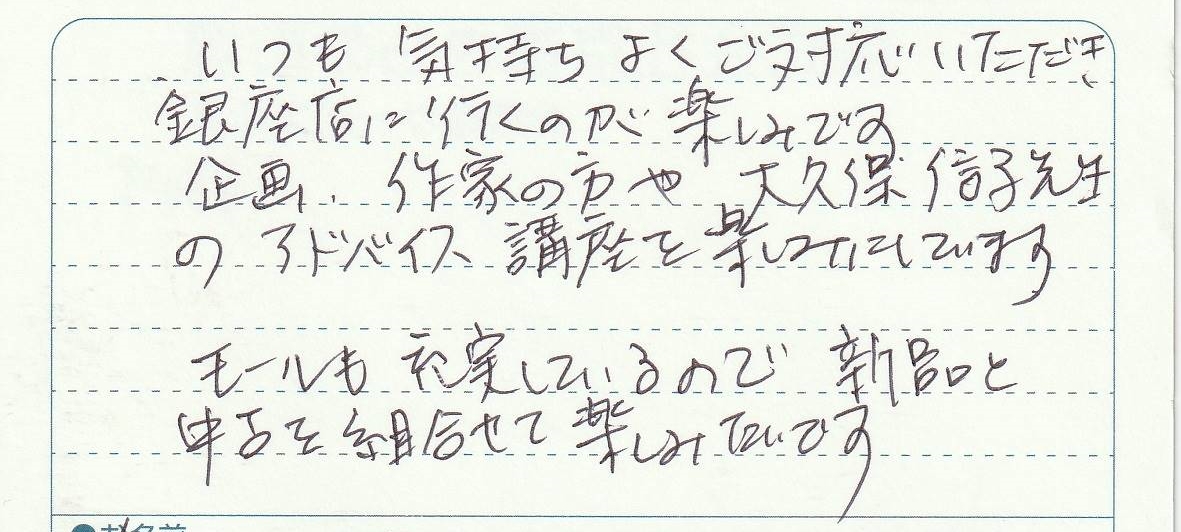 いつも 気持ち よく ご対応いただき
銀座店に行くのが 楽しみです
企画、作家の方や 大久保 信子先生
の アドバイス 講座を 楽しみにしています
モールも 充実しているので 新品と
中古を 組合せて 楽しみたいです